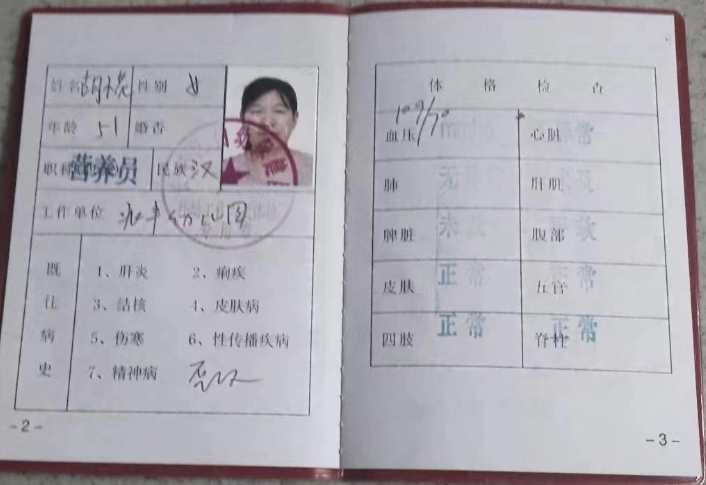 姓名 胡 性别 女
年龄 51 婚否
职称 营养员 民族 汉
工作单位 幼儿园
既往病史
1、肝炎 2、痢疾
3、结核 4、皮肤病
5、伤寒 6、性传播疾病
7、精神病 否认
-2-
体格检查
血压 109/70 mmHg 心脏 正常
肺 无 肝脏 未及
脾脏 未及 腹部 软
皮肤 正常 五官 正常
四肢 正常 脊柱 正常
-3-